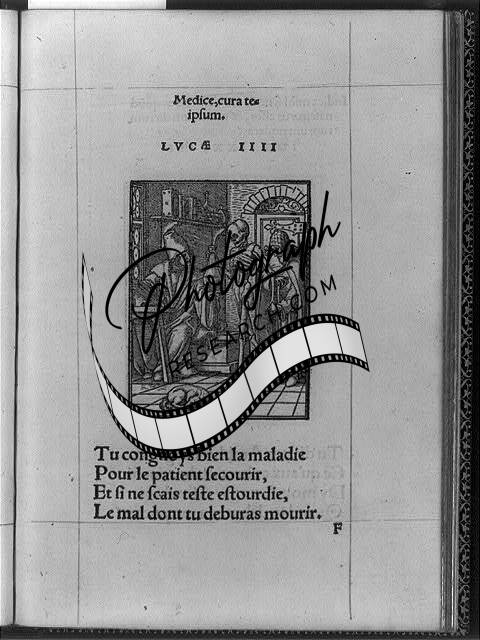 Medice, cura te-
ipsum.
LVCÆ IIII
Photograph
RESEARCH.COM
Tu congnoys bien la maladie
Pour le patient ſecourir,
Et ſi ne ſcais teſte eſtourdie,
Le mal dont tu deburas mourir.
F